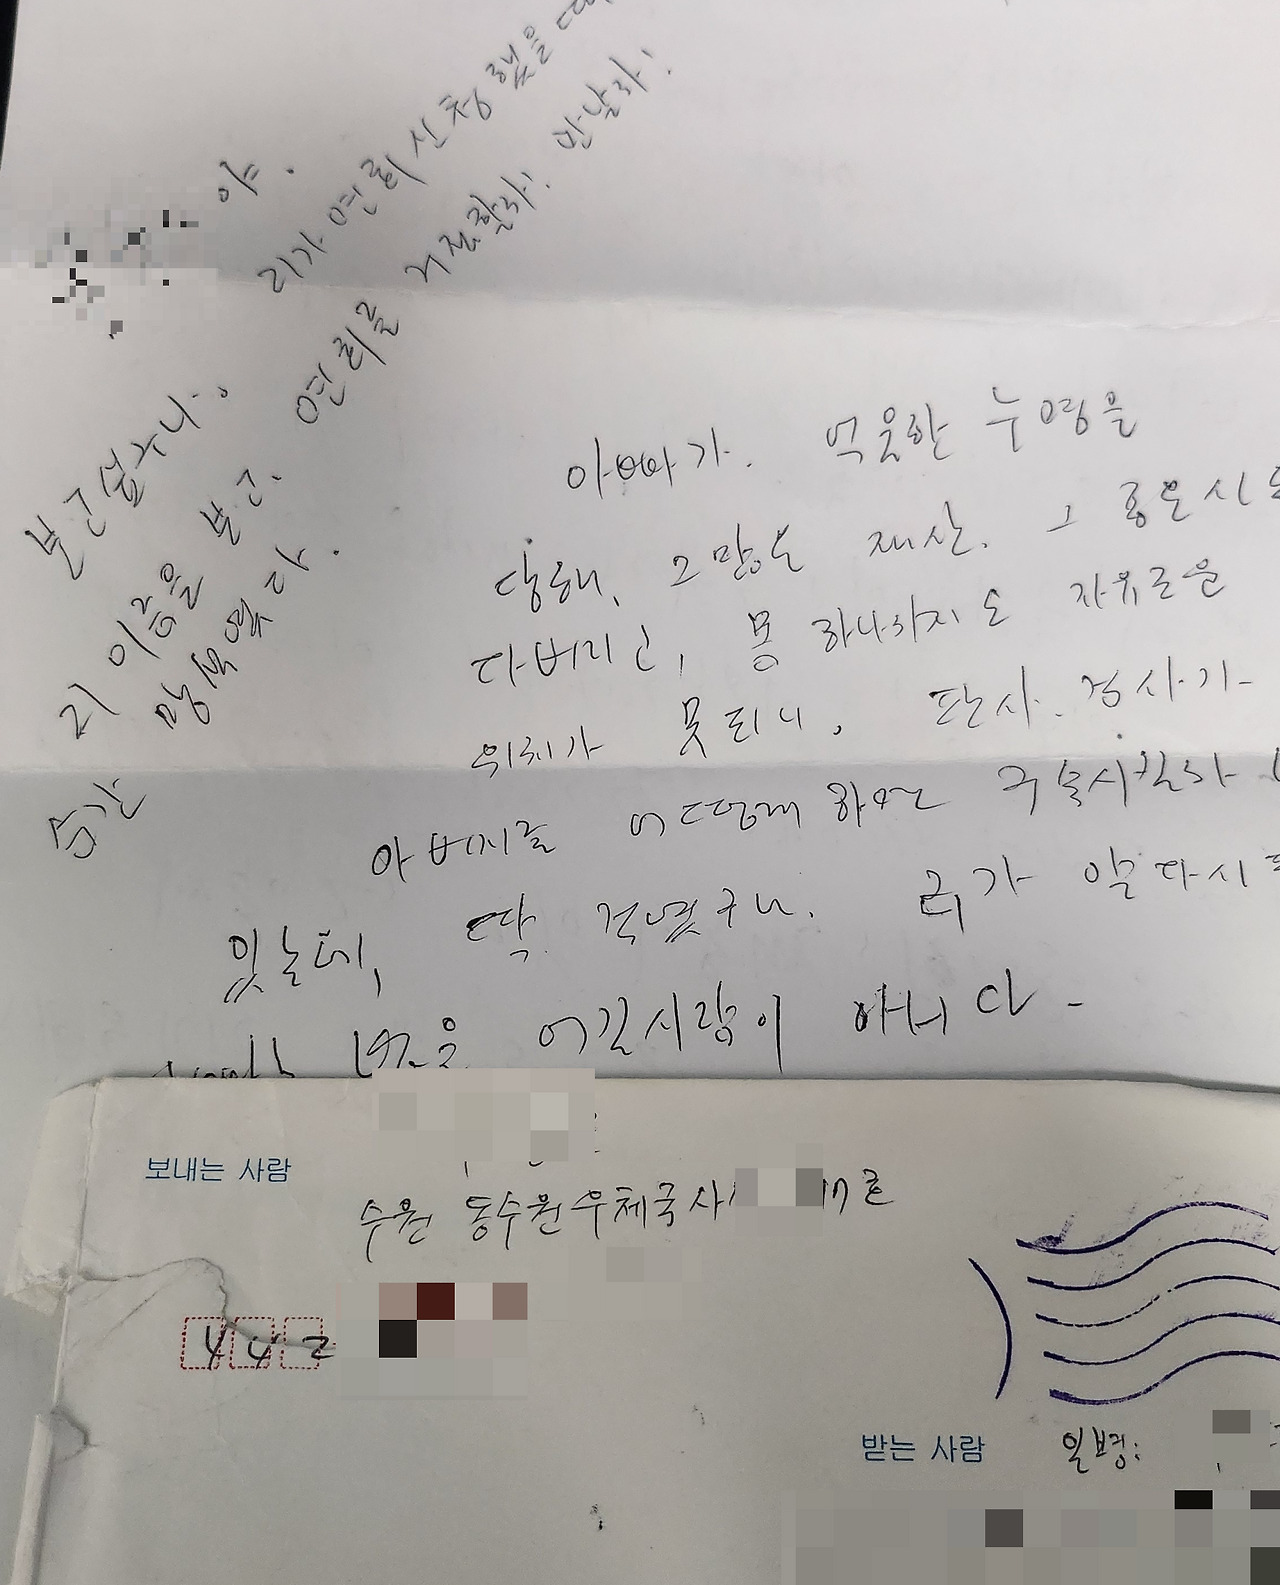 야.
보고싶구나.
네가 면회신청했을 때
네 이름을 보고. 면회를 거절할까! 만날까!
순간 망설였다.
아빠가. 억울한 누명을
당해, 그 많은 재산. 그
다버리고, 몸 하나까지도 자유로운
위치가 못되니, 판사. 검사가
아버지를 어떻게 하면 구속시킬까
있는데, 딱 걸렸구나. 네가 알다시피
법을 어길사람이 아니다-
보내는 사람
수원 동수원우체국사
442
받는 사람 일병: